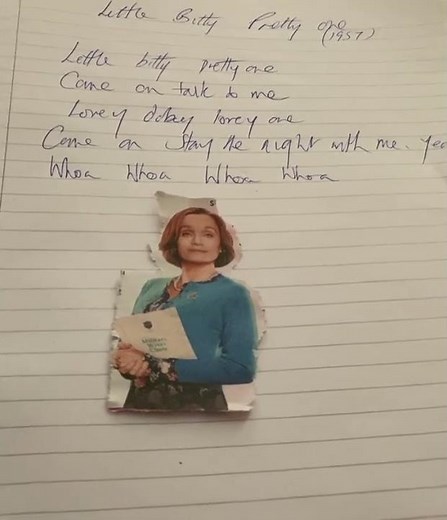 Little Bitty Pretty one
(1957)
Little bitty pretty one
Come on talk to me
Lovey dovey lovey one
Come on stay the night with me. Yea
Whoa Whoa Whoa Whoa